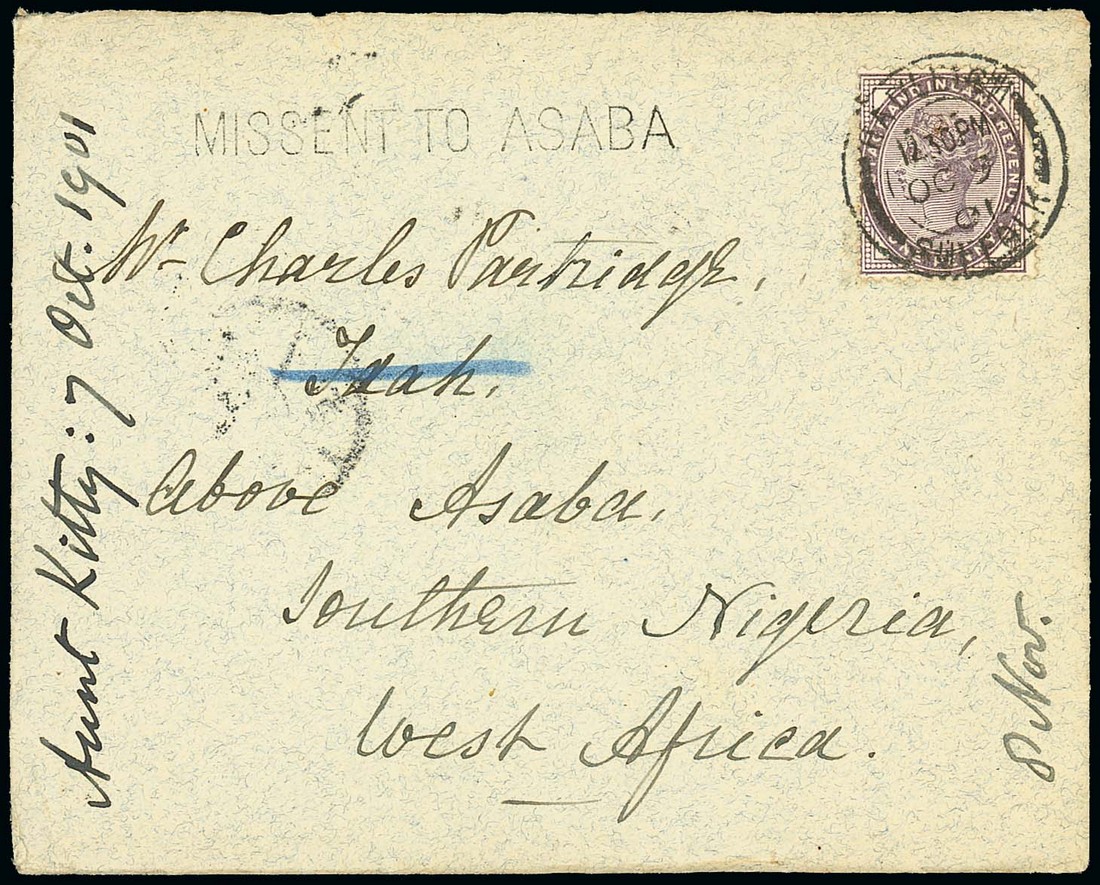 MISSENT TO ASABA
POSTAGE AND INLAND REVENUE
12.30PM
OC 9
01
SUFFOLK
Mr Charles Partridge,
Idah,
Above Asaba,
Southern Nigeria,
West Africa.
Aunt Kitty: 7 Oct. 1901
8 Nov.